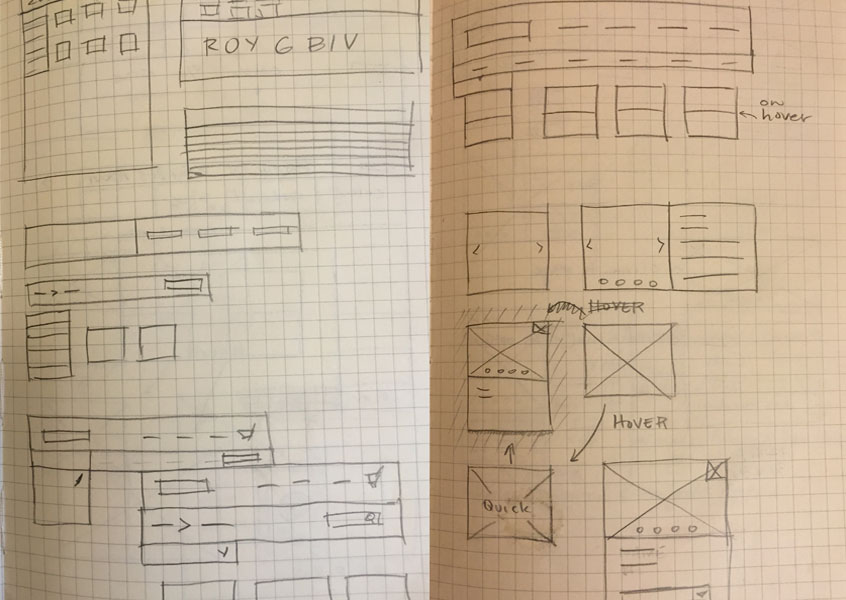 ROY G BIV
on
hover
HOVER
HOVER
Quick